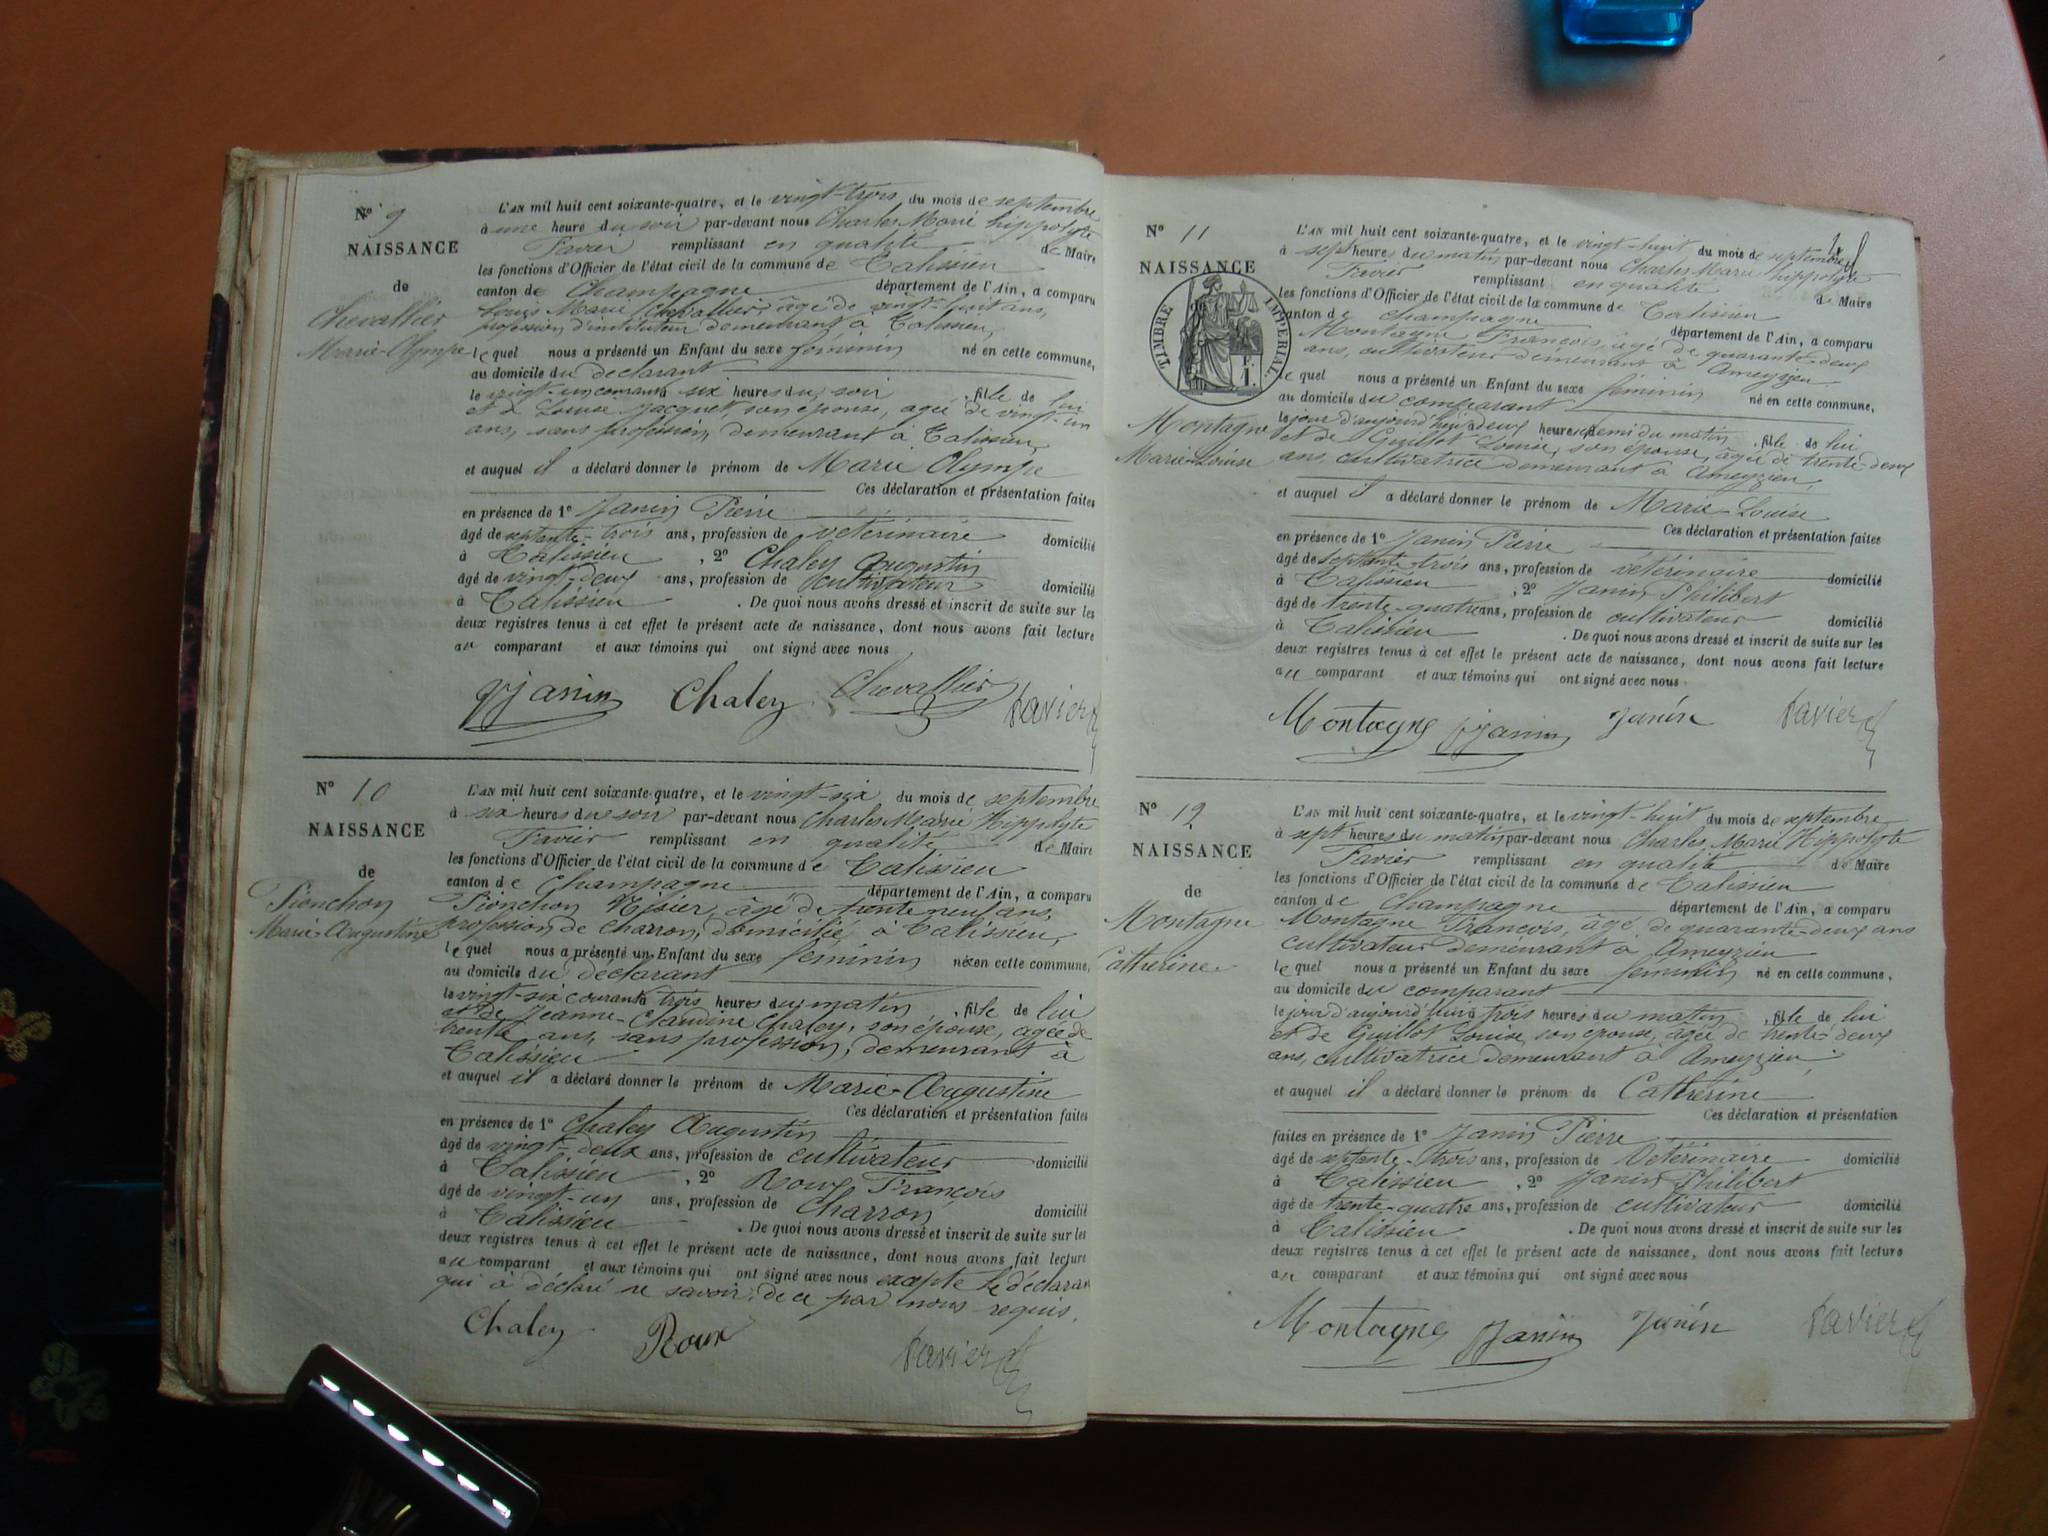 N° 9
NAISSANCE
de
Chevallier
Marie-Olympe
L'AN mil huit cent soixante-quatre, et le vingt-trois du mois de septembre
à une heure du soir par-devant nous Charles Marie hippolyte
Favier remplissant en qualité de Maire
les fonctions d'Officier de l'état civil de la commune de Talissieu
canton de Champagne département de l'Ain, a comparu
Louis Marie Chevallier, âgé de vingt-huit ans,
profession d'instituteur demeurant à Talissieu,
lequel nous a présenté un Enfant du sexe féminin né en cette commune,
au domicile du déclarant
le vingt-un courant à six heures du soir, fille de lui
et de Louise Jacquet, son épouse, agée de vingt-un
ans, sans profession, demeurant à Talissieu,
et auquel il a déclaré donner le prénom de Marie Olympe
Ces déclaration et présentation faites
en présence de 1° Janin Pierre
âgé de septante-trois ans, profession de vétérinaire domicilié
à Talissieu, 2° Chaley Augustin
âgé de vingt-deux ans, profession de cultivateur domicilié
à Talissieu. De quoi nous avons dressé et inscrit de suite sur les
deux registres tenus à cet effet le présent acte de naissance, dont nous avons fait lecture
au comparant et aux témoins qui ont signé avec nous
Janin Chaley Chevallier Favier
N° 10
NAISSANCE
de
Pionchon
Marie-Augustine
L'AN mil huit cent soixante-quatre, et le vingt-six du mois de septembre
à six heures du soir par-devant nous Charles Marie Hippolyte
Favier remplissant en qualité de Maire
les fonctions d'Officier de l'état civil de la commune de Talissieu
canton de Champagne département de l'Ain, a comparu
Pionchon âgé de trente neuf ans,
profession de charron, domicilié à Talissieu,
lequel nous a présenté un Enfant du sexe féminin né en cette commune,
au domicile du déclarant
le vingt-six courant à trois heures du matin, fille de lui
et de Jeanne-Claudine Chaley, son épouse, agée de
trente ans, sans profession, demeurant à
Talissieu
et auquel il a déclaré donner le prénom de Marie-Augustine
Ces déclaration et présentation faites
en présence de 1° Chaley Augustin
âgé de vingt-deux ans, profession de cultivateur domicilié
à Talissieu, 2° Roux François
âgé de vingt-un ans, profession de Charron domicilié
à Talissieu. De quoi nous avons dressé et inscrit de suite sur les
deux registres tenus à cet effet le présent acte de naissance, dont nous avons fait lecture
au comparant et aux témoins qui ont signé avec nous excepté le déclarant
qui à déclaré ne savoir, de ce par nous requis.
Chaley Roux Favier
N° 11
NAISSANCE
TIMBRE IMPERIAL
1 F.
Montagne
Marie-Louise
L'AN mil huit cent soixante-quatre, et le vingt-huit du mois de septembre
à sept heures du matin par-devant nous Charles Marie hippolyte
Favier remplissant en qualité de Maire
les fonctions d'Officier de l'état civil de la commune de Talissieu
canton de champagne département de l'Ain, a comparu
Montagne François, âgé de quarante-deux
ans, cultivateur demeurant à Ameyzieu
lequel nous a présenté un Enfant du sexe féminin né en cette commune,
au domicile du comparant
le jour d'aujourd'hui à deux heures et demi du matin, fille de lui
et de Guillot Louise, son épouse, âgée de trente-deux
ans, cultivatrice demeurant à Ameyzieu,
et auquel il a déclaré donner le prénom de Marie-Louise
Ces déclaration et présentation faites
en présence de 1° Janin Pierre
âgé de septante-trois ans, profession de vétérinaire domicilié
à Talissieu, 2° Janin Philibert
âgé de trente-quatre ans, profession de cultivateur domicilié
à Talissieu. De quoi nous avons dressé et inscrit de suite sur les
deux registres tenus à cet effet le présent acte de naissance, dont nous avons fait lecture
au comparant et aux témoins qui ont signé avec nous
Montagne Janin Janin Favier
N° 12
NAISSANCE
de
Montagne
Catherine
L'AN mil huit cent soixante-quatre, et le vingt-huit du mois de septembre
à sept heures du matin par-devant nous Charles Marie Hippolyte
Favier remplissant en qualité de Maire
les fonctions d'Officier de l'état civil de la commune de Talissieu
canton de Champagne département de l'Ain, a comparu
Montagne François, âgé de quarante-deux ans
cultivateur demeurant à Ameyzieu
lequel nous a présenté un Enfant du sexe féminin né en cette commune,
au domicile du comparant
le jour d'aujourd'hui à trois heures du matin, fille de lui
et de Guillot Louise, son épouse, agée de trente-deux
ans, cultivatrice demeurant à Ameyzieu,
et auquel il a déclaré donner le prénom de Catherine
Ces déclaration et présentation
faites en présence de 1° Janin Pierre
âgé de septante-trois ans, profession de Vétérinaire domicilié
à Talissieu, 2° Janin Philibert
âgé de trente-quatre ans, profession de cultivateur domicilié
à Talissieu. De quoi nous avons dressé et inscrit de suite sur les
deux registres tenus à cet effet le présent acte de naissance, dont nous avons fait lecture
au comparant et aux témoins qui ont signé avec nous
Montagne Janin Janin Favier